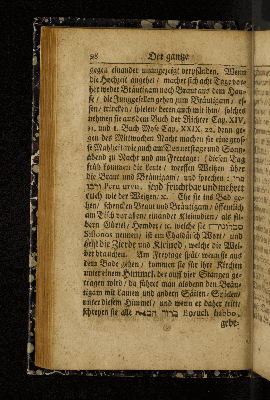 98 Der gantze
gegen einander unangezeigt verpfänden. Wenn
die Hochzeit angehet / machet sich acht Tage vor-
her weder Bräutigam noch Braut aus dem Hau-
se / die Junggesellen gehen zum Bräutigam / es-
sen / trincken / spielen deren auch mit ihm / solches
nehmen sie aus dem Buch der Richter Cap. XIV,
11. und 1. Buch Mose Cap. XXIX. 22. dann ge-
gen der Mittwochen Nacht machen sie eine gros-
se Mahlzeit / wie auch am Donnerstage und Sonn-
abend zu Nacht und am Freytage: (diesen Tag
früh kommen die Leute / werffen Weitzen über
die Braut und Bräutigam / und sprechen: פרו
ורבו Peru urvu, seyd fruchtbar und mehret
euch wie der Weitzen, &c. Ehe sie ins Bad ge-
hen / schencken Braut und Bräutigam / öffentlich
am Tisch vor allen einander Kleinodien / als sil-
bern Gürtel / Hemder / &c. welche sie
Siflonos nennen / ist ein Chaldäisch Wort / und
heist die Zierde und Kleinod / welche die Wei-
ber brauchen. Am Freytage spät / wenn sie aus
dem Bade gehen / kommen sie für ihre Kirchen
unter einem Himmel, der auf vier Stangen ge-
tragen wird / da führet man alsdenn den Bräu-
tigam mit Lauten und andern Säiten-Spielen /
unter diesem Himmel / und wenn er daher tritt /
schreyen sie alle ברוך הבא Boruch habbo,
gebe-